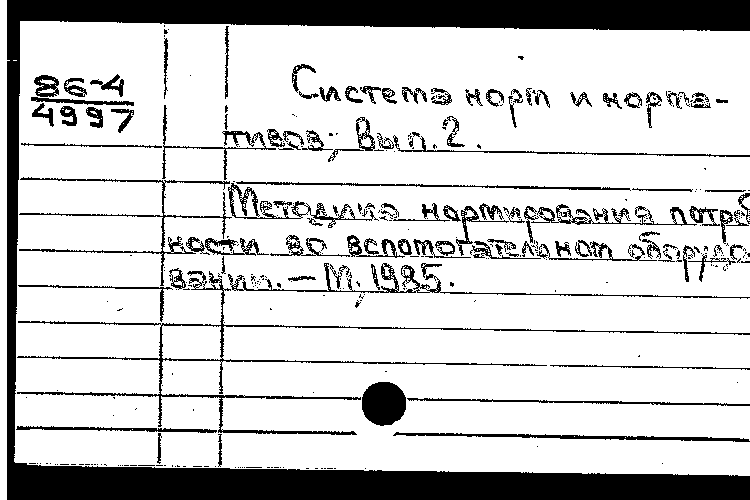 86-4
4997
Система норм и норма-
тивов; Вып. 2.
Методика нормирования потреб
ности во вспомогательном оборудо-
вании. — М., 1985.